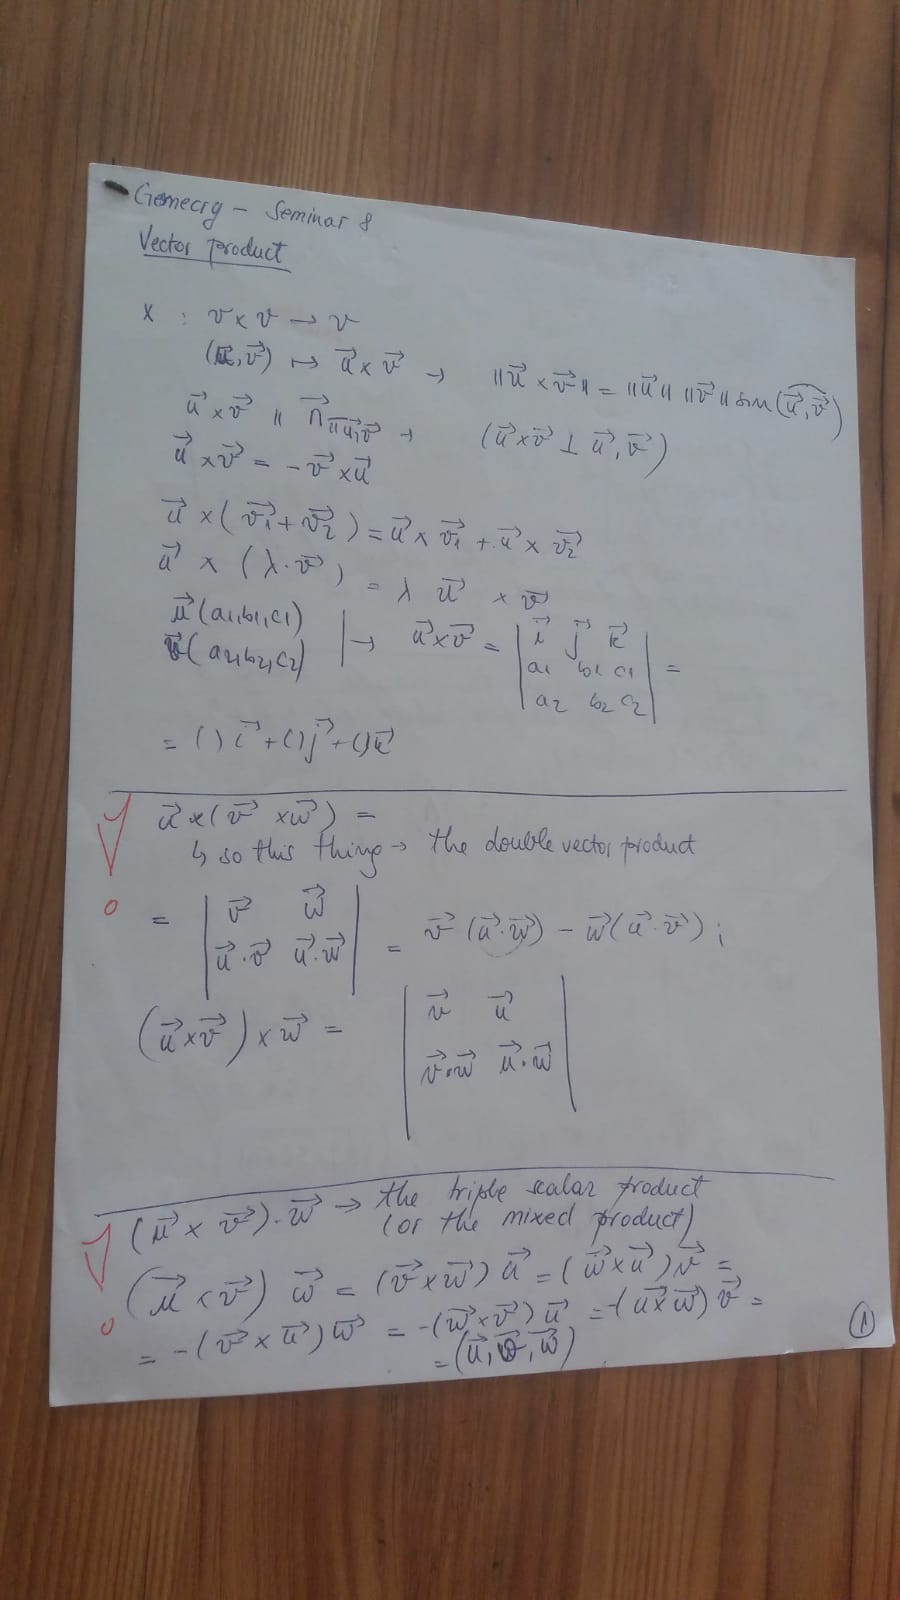 Geomecry - Seminar 8
Vector product
x : v x v → v
(u⃗, v⃗) ↦ u⃗ x v⃗ → ||u⃗ x v⃗|| = ||u⃗|| ||v⃗|| sin(u⃗, v⃗)
u⃗ x v⃗ || n⃗ → (u⃗ x v⃗ ⊥ u⃗, v⃗)
u⃗ x v⃗ = - v⃗ x u⃗
u⃗ x (v⃗1 + v⃗2) = u⃗ x v⃗1 + u⃗ x v⃗2
u⃗ x (λ · v⃗) = λ u⃗ x v⃗
u⃗ (a1, b1, c1)
v⃗ (a2, b2, c2) | → u⃗ x v⃗ = | i⃗ j⃗ k⃗ |
| a1 b1 c1 | =
| a2 b2 c2 |
= ( ) i⃗ + ( ) j⃗ + ( ) k⃗
u⃗ x (v⃗ x w⃗) =
↳ so this thing → the double vector product
= | v⃗ w⃗ |
| u⃗·v⃗ u⃗·w⃗ | = v⃗ (u⃗·w⃗) - w⃗ (u⃗·v⃗) ;
(u⃗ x v⃗) x w⃗ = | v⃗ u⃗ |
| v⃗·w⃗ u⃗·w⃗ |
(u⃗ x v⃗)·w⃗ → the triple scalar product
(or the mixed product)
(u⃗ x v⃗) w⃗ = (v⃗ x w⃗) u⃗ = (w⃗ x u⃗) v⃗ =
= -(v⃗ x u⃗) w⃗ = -(w⃗ x v⃗) u⃗ = -(u⃗ x w⃗) v⃗ =
= (u⃗, v⃗, w⃗)
1